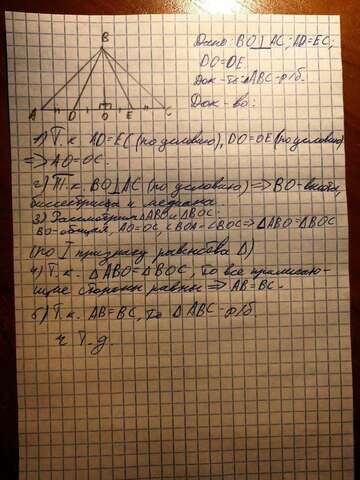 B
A D O E C
Дано: BO⊥AC; AD=EC;
DO=OE.
Док-ть: △ABC-р/б.
Док-во:
1) Т.к. AD=EC (по условию), DO=OE (по условию)
=> AO=OC.
2) Т.к. BO⊥AC (по условию) => BO-высота,
биссектриса и медиана
3) Рассмотрим △ABO и △BOC:
BO-общая, AO=OC, ∠BOA=∠BOC => △ABO=△BOC
(по I признаку равенства △)
4) Т.к. △ABO=△BOC, то все прилисаю-
щие стороны равны => AB=BC.
5) Т.к. AB=BC, то △ABC-р/б.
ч.т.д.